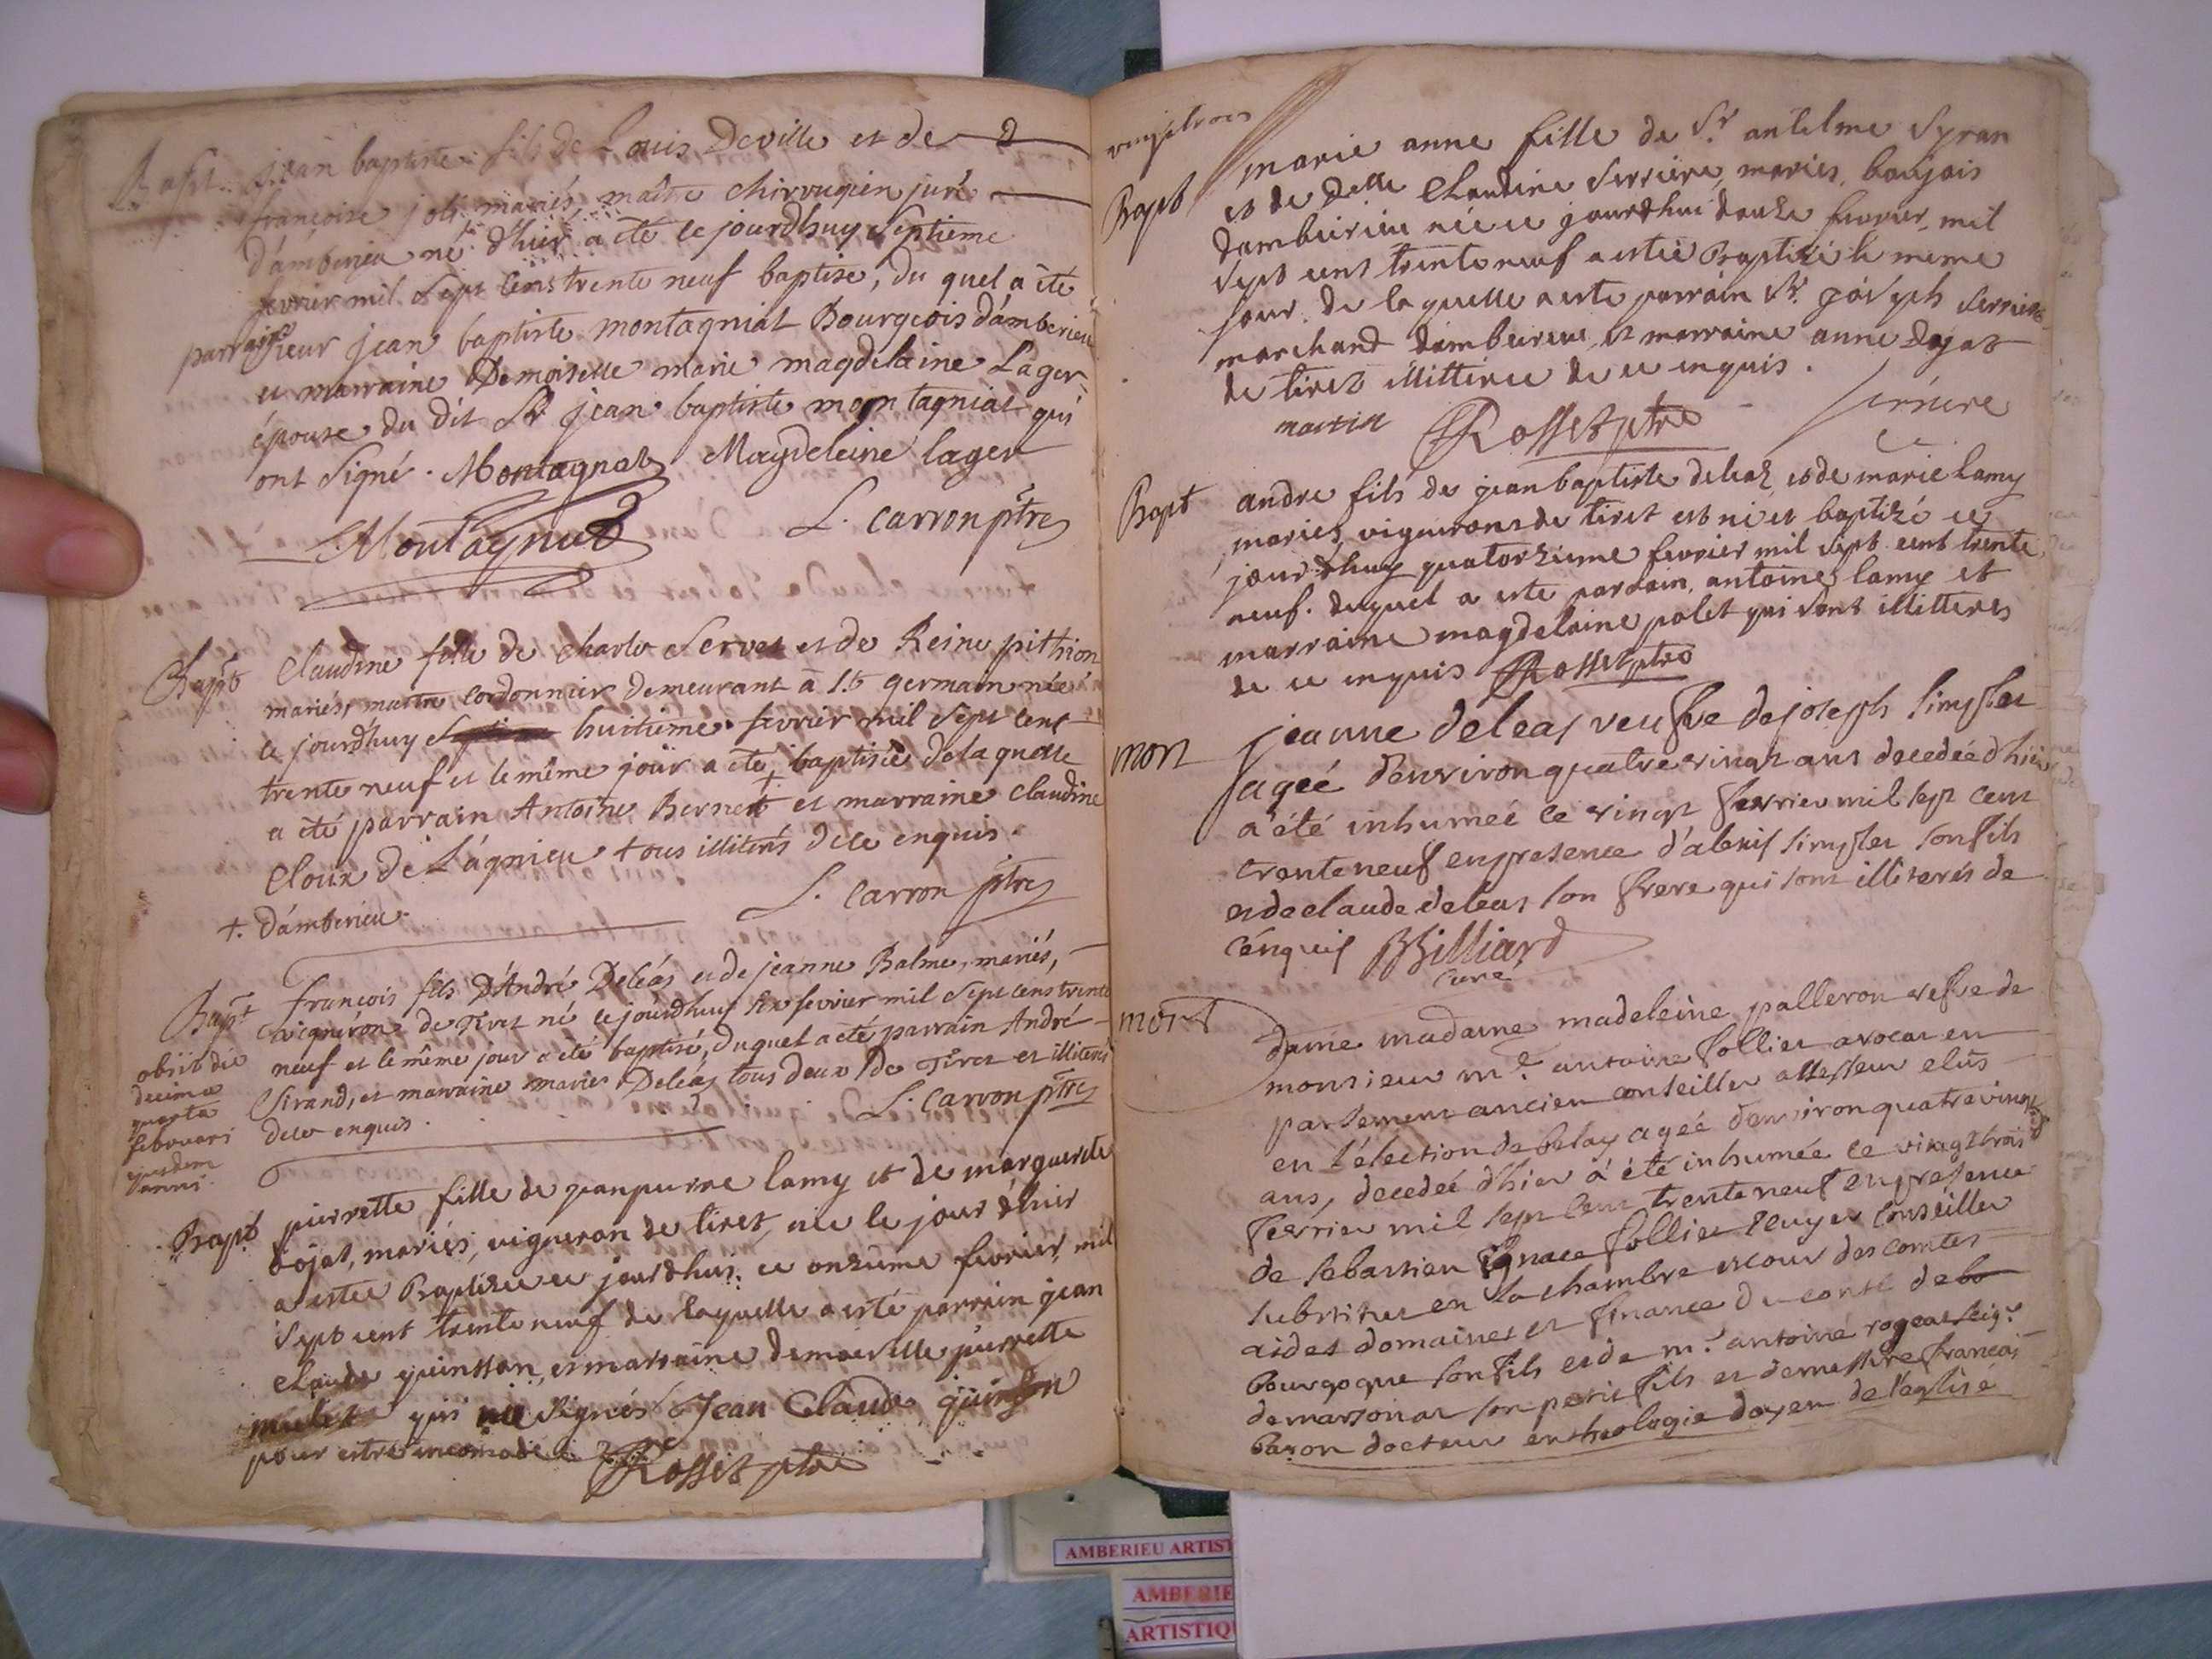 Bapt jean baptiste fils de Louis Deville et de
françoise joli mariés, maître chirurgien juré
d'amberieu né d'hier a été ce jourdhuy septieme
fevrier mil sept cens trente neuf baptisé, du quel a été
parrain sieur jean baptiste montagniat Bourgeois d'amberieu
et marraine Demoiselle marie magdelaine Lager
épouse du dit Sr jean baptiste montagniat qui
ont signé. Montagnat Magdeleine lager
Montagnat L. Carron ptre
Bapt Claudine fille de charle Servet et de Reine pithion
mariés, maitre cordonnier demeurant à St germain née
ce jourdhuy huitieme fevrier mil sept cent
trente neuf et le même jour a été baptisée de laquelle
a été parrain Antoine Bernet + et marraine claudine
Cloux de Lágnieu tous illiterés de ce enquis.
+. d'amberieu. L. Carron ptre
Bapt françois fils D'André Deléas et de jeanne Balme, mariés,
vigneron de Tiret né ce jourdhuy fevrier mil sept cens trente
neuf et le même jour a été baptisé, duquel a été parrain André
Sirand, et marraine marie Deléas tous deux de Tiret et illiterés
de ce enquis. L. Carron ptre
obiit die
decima
quarta
februarii
ejusdem
anni.
Bapt pierrette fille de jeanpierre lamy et de marguerite
dojat, mariés, vigneron de tiret, née le jour d'hier
a estee Baptizée ce jourdhui ce onzieme fevrier, mil
sept cent trente neuf de laquelle a esté parrain jean
claude guinston, et marraine demoiselle pierrette
mulet qui signés Jean Claude
pour estre incomode Rosset ptre
vingt trois
Bapt marie anne fille de Sr antelme Syran
et de Delle Claudine Serriere, mariés, boujois
dambeirieu née ce jourdhui douze fevrier, mil
sept cent trente neuf a estée Baptizé le meme
jour de laquelle a esté parrain Sr. joseph serriere
marchand dambeirieu, et marraine anne dojat
de tiret illitérée de ce enquis.
Rosset ptre serriere
Bapt andre fils de jean baptiste deleaz et de marie lamy
mariés vignerons de tiret est né et baptizé ce
jour dhuy quatorzieme fevrier mil sept cent trente
neuf. duquel a este parrain, antoine lamy et
marraine magdelaine polet qui sont illitteres
de ce enquis Rosset ptre
mort jeanne deleas veufve de joseph simpler
agée d'environ quatre vingt ans decedée d'hier
a été inhumée ce vingt fevrier mil sept cent
trente neuf en presence d'alexis simpler son fils
et de claude deleas son frere qui sont illiterés de
cénquis Billiard
curé
mort dame madame madeleine palleron vefve de
monsieur mre antoine follier avocat en
parlement ancien conseiller assesseur elus
en l'élection de belay agée d'environ quatre vingt
ans, decedée d'hier a été inhumée ce vingt trois
fevrier mil sept cent trente neuf en presence
de sebastien ignace follier ecuyer conseiller
substitut en la chambre et cour des comtes
aides domaines et finance du comté de bo
bourgogne son fils et de mre antoine rogeat seigr
de marsonat son petit fils et de messire françois
baron docteur en theologie doyen de l'eglise
AMBERIEU ARTIST
AMBERIE
ARTISTIQU